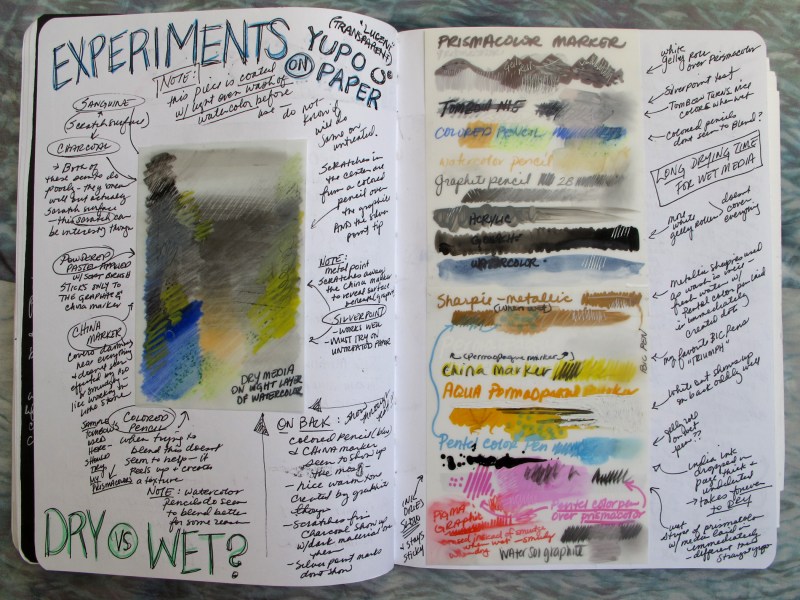 EXPERIMENTS
ON
YUPO
PAPER
"LUCENT"
(TRANSPARENT)
NOTE:
this piece is coated
w/ light even wash of
watercolor before
use - do not
know if
will do
same on
untreated.
SANGUINE
(scratch surface)
CHARCOAL
→ Both of
these seem to do
poorly - they
well but actually
scratch surface
- this scratch can
be interesting though
POWDERED
PASTEL APPLIED
W/ SOFT BRUSH
STICKS ONLY TO
THE GRAPHITE &
china marker
CHINA
MARKER
Covers
near everything
& doesn't
effected by
so
like works on
Scratches in
the center are
from a colored
pencil over
the graphite
AND the silver
point tip
NOTE:
metal point
scratches away
the China marker
to reveal surface
SILVERPOINT
- WORKS WELL
- MUST TRY ON
UNTREATED PAPER
DRY MEDIA
ON LIGHT LAYER
OF WATERCOLOR
COLORED
PENCIL
when trying to
blend this doesn't
seem to help - it
peels up & creates
a texture
NOTE: watercolor
pencils do seem
to blend better
for some reason
SAMPLE
TOMBOWS
USED
HERE -
SHOULD
TRY
MY
PRISMACOLORS
ON BACK:
colored pencil (blue)
& CHINA marker
seem to show up
the most -
- nice warm tone
created by graphite
though
- Scratches from
Charcoal show up
w/ dark material on
them
- Silver point marks
don't show
DRY VS WET?
PRISMACOLOR MARKER
TOMBOW N15
COLORED PENCIL
watercolor pencil
graphite pencil 2B
ACRYLIC
GOUACHE
WATERCOLOR
Sharpie - metallic
(when wet)
BIC PEN
(Permopaque marker)
China marker
AQUA Permopaque marker
Pentel Color Pen
Pentel color pen
over prismacolor
PAINT
GRAPHIC
when wet - smudgy
water sol graphite
INK
DRIES
SLOW
& stays
sticky
white
gelly roll
over Prismacolor
Silverpoint test
TOMBOW TURNS N15
COLORS when wet
Colored pencils
dont seem to Blend?
LONG DRYING TIME
FOR WET MEDIA
more
white
gelly roller
doesn't
cover
everything
Metallic sharpies
go
fresh water w/
Pentel color pen laid
in immediately
created
my favorite BIC pens
"TRIUMPH"
white
on back oddly well
gelly roll
pen??
india ink
dropped in
past thick &
→ takes forever
to DRY
wet
stripe of prismacolor
w/ media laid
immediately
- different than
straight